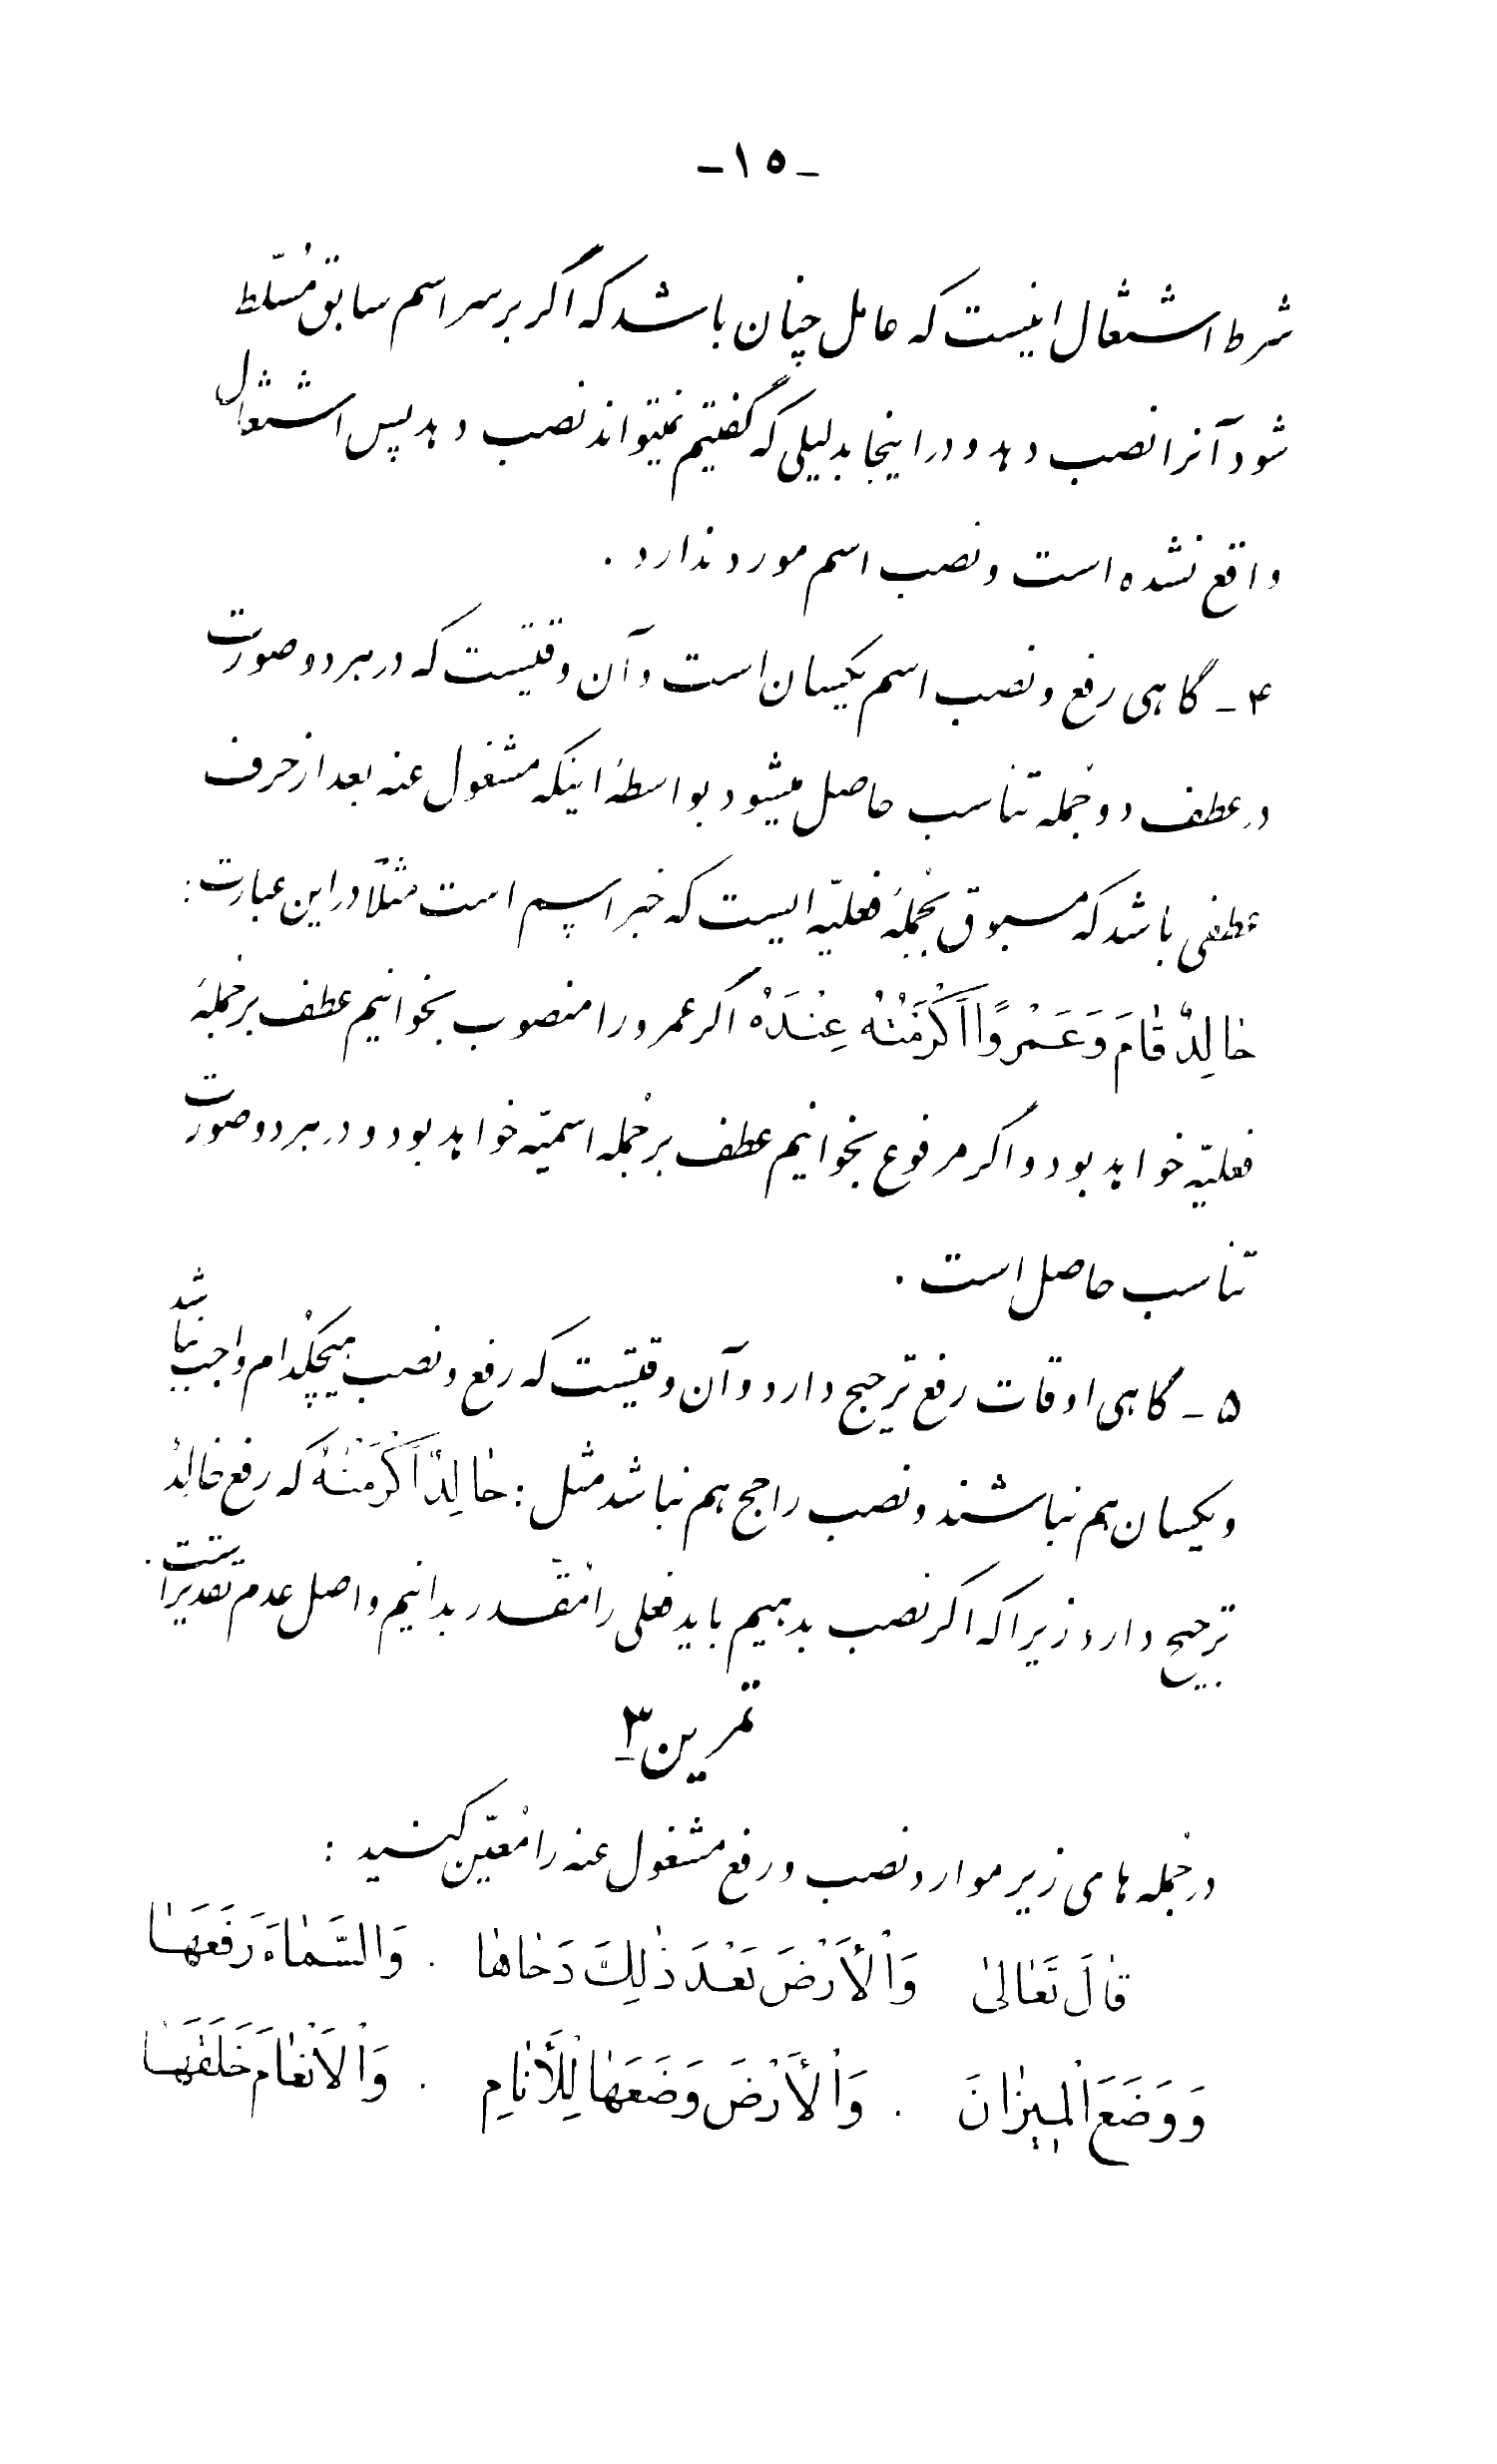 -۱۵-
شرط اشتغال اینست که عامل چنان باشد که اگر بر سر اسم سابق مُسلّط
شود آنرا نصب دهد و در اینجا بدلیلی که گفتیم نمیتواند نصب دهد پس اشتغال
واقع نشده است و نصب اسم مورد ندارد .
۴ - گاهی رفع و نصب اسم یکسان است و آن وقتیست که در هر دو صورت
در عطف دو جُمله تناسب حاصل میشود بواسطهٔ اینکه مشغول عنه بعد از حرف
عطفی باشد که مسبوق بجُملهٔ فعلیّه ایست که خبر اسم است مثلاً در این عبارت :
خالِدٌ قامَ وَعَمْروًا اَکْرَمْتُهُ عِنْدَهُ اگر عمرو را منصوب بخوانیم عطف بر جُملهٔ
فعلیّه خواهد بود و اگر مرفوع بخوانیم عطف بر جُمله اسمیّه خواهد بود و در هر دو صورت
تناسب حاصل است .
۵ - گاهی اوقات رفع ترجیح دارد و آن وقتیست که رفع و نصب هیچکُدام واجب نباشد
و یکسان هم نباشند و نصب راجح هم نباشد مثل : خالِدٌ اَکْرَمْتُهُ که رفع خالِدٌ
ترجیح دارد زیرا که اگر نصب بدهیم باید فعلی را مُقَدر بدانیم و اصل عدم تقدیر است .
تمرین ۳
در جُمله های زیر موارد نصب و رفع مشغول عنه را مُعیّن کنید :
قالَ تَعالیٰ وَاْلأَرْضَ بَعْدَ ذٰلِكَ دَحاها . وَالسَّماءَ رَفَعَها
وَ وَضَعَ الْمیزانَ . وَاْلأَرْضَ وَضَعَها لِلْأَنامِ . وَاْلاَنْعامَ خَلَقَها